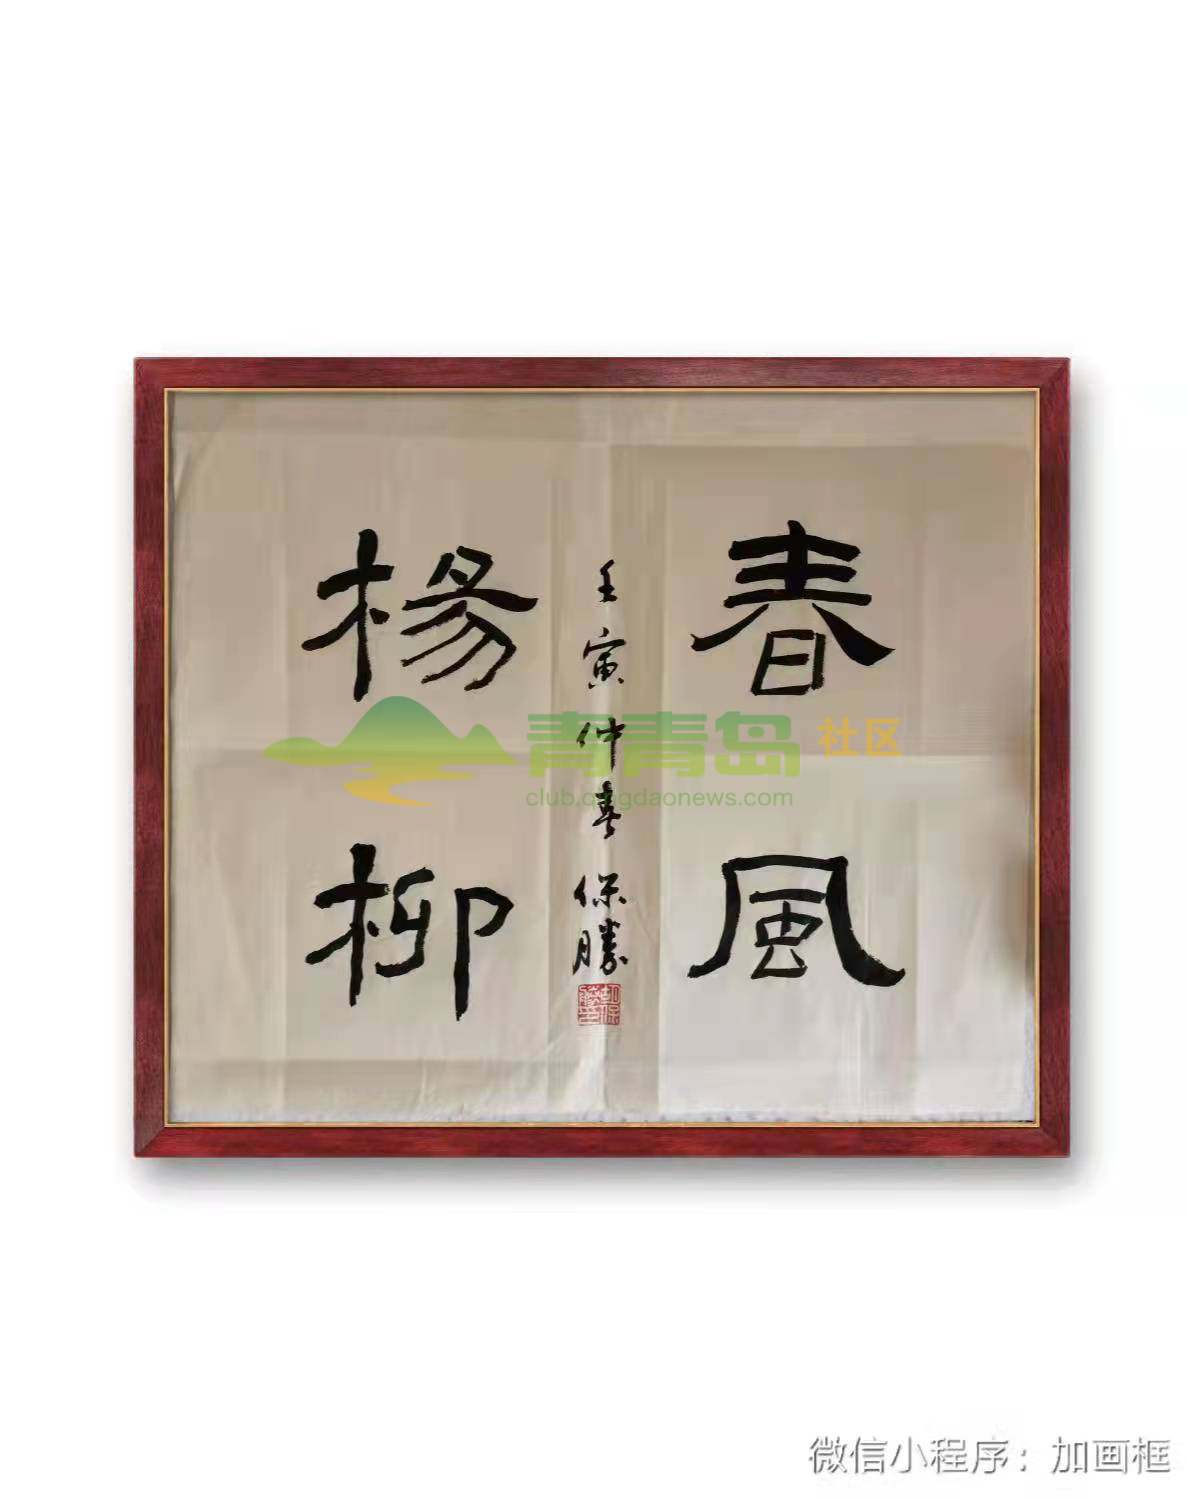 春風
楊柳
壬寅仲春
保勝
青青岛社区
club.qingdaonews.com
微信小程序：加画框